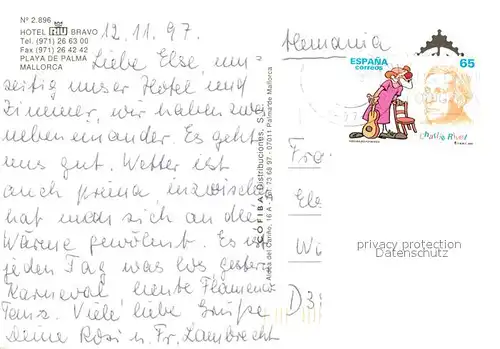 Nº 2.896
HOTEL RIU BRAVO
Tel (971) 26 63 00
Fax (971) 26 42 42
PLAYA DE PALMA
MALLORCA
12.11.97.
Liebe Else, um-
seitig unser Hotel und
Zimmer, wir haben zwei
nebeneinander. Es geht
uns gut. Wetter ist
auch prima inzwischen
hat man sich an die
Wärme gewöhnt. Es
jeden Tag was los gestern
Karneval heute Flamenco
Tanz. Viele liebe Grüße
deine Rosi u. Fr. Lambrecht
COFIBA, Distribuciones, S.
07011 Palma de Mallorca
Alemania
ESPAÑA
correos
65
Charlie Rivel
Fra
Els
Wi
privacy protection
Datenschutz
D3